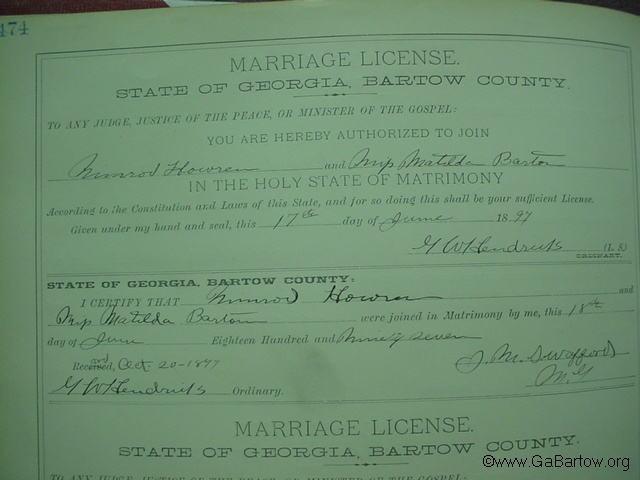 474
MARRIAGE LICENSE.
STATE OF GEORGIA, BARTOW COUNTY.
TO ANY JUDGE, JUSTICE OF THE PEACE, OR MINISTER OF THE GOSPEL:
YOU ARE HEREBY AUTHORIZED TO JOIN
Nimrod Howren and Miss Matilda Barton
IN THE HOLY STATE OF MATRIMONY
According to the Constitution and Laws of this State, and for so doing this shall be your sufficient License.
Given under my hand and seal, this 17th day of June 1897
G W Hendricks (L. S.)
ORDINARY.
STATE OF GEORGIA, BARTOW COUNTY:
I CERTIFY THAT Nimrod Howren and
Miss Matilda Barton were joined in Matrimony by me, this 18th
day of June Eighteen Hundred and Ninety seven
Received, Oct. 20-1897 J. M. Swafford
M. G
G W Hendricks Ordinary.
MARRIAGE LICENSE.
STATE OF GEORGIA, BARTOW COUNTY.
TO ANY JUDGE, JUSTICE OF THE PEACE, OR MINISTER OF THE GOSPEL:
©www.GaBartow.org